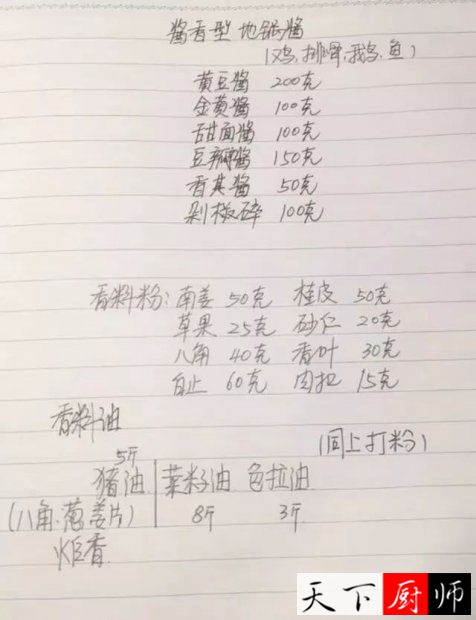 酱香型地锅酱
(鸡,排骨,鹅,鱼)
黄豆酱 200克
金黄酱 100克
甜面酱 100克
豆瓣酱 150克
香其酱 50克
剁椒碎 100克
香料粉: 南姜 50克 桂皮 50克
草果 25克 砂仁 20克
八角 40克 香叶 30克
白止 60克 肉扣 15克
香料油
(同上打粉)
5斤
猪油 菜籽油 色拉油
(八角.葱姜片) 8斤 3斤
炬香
天下厨师